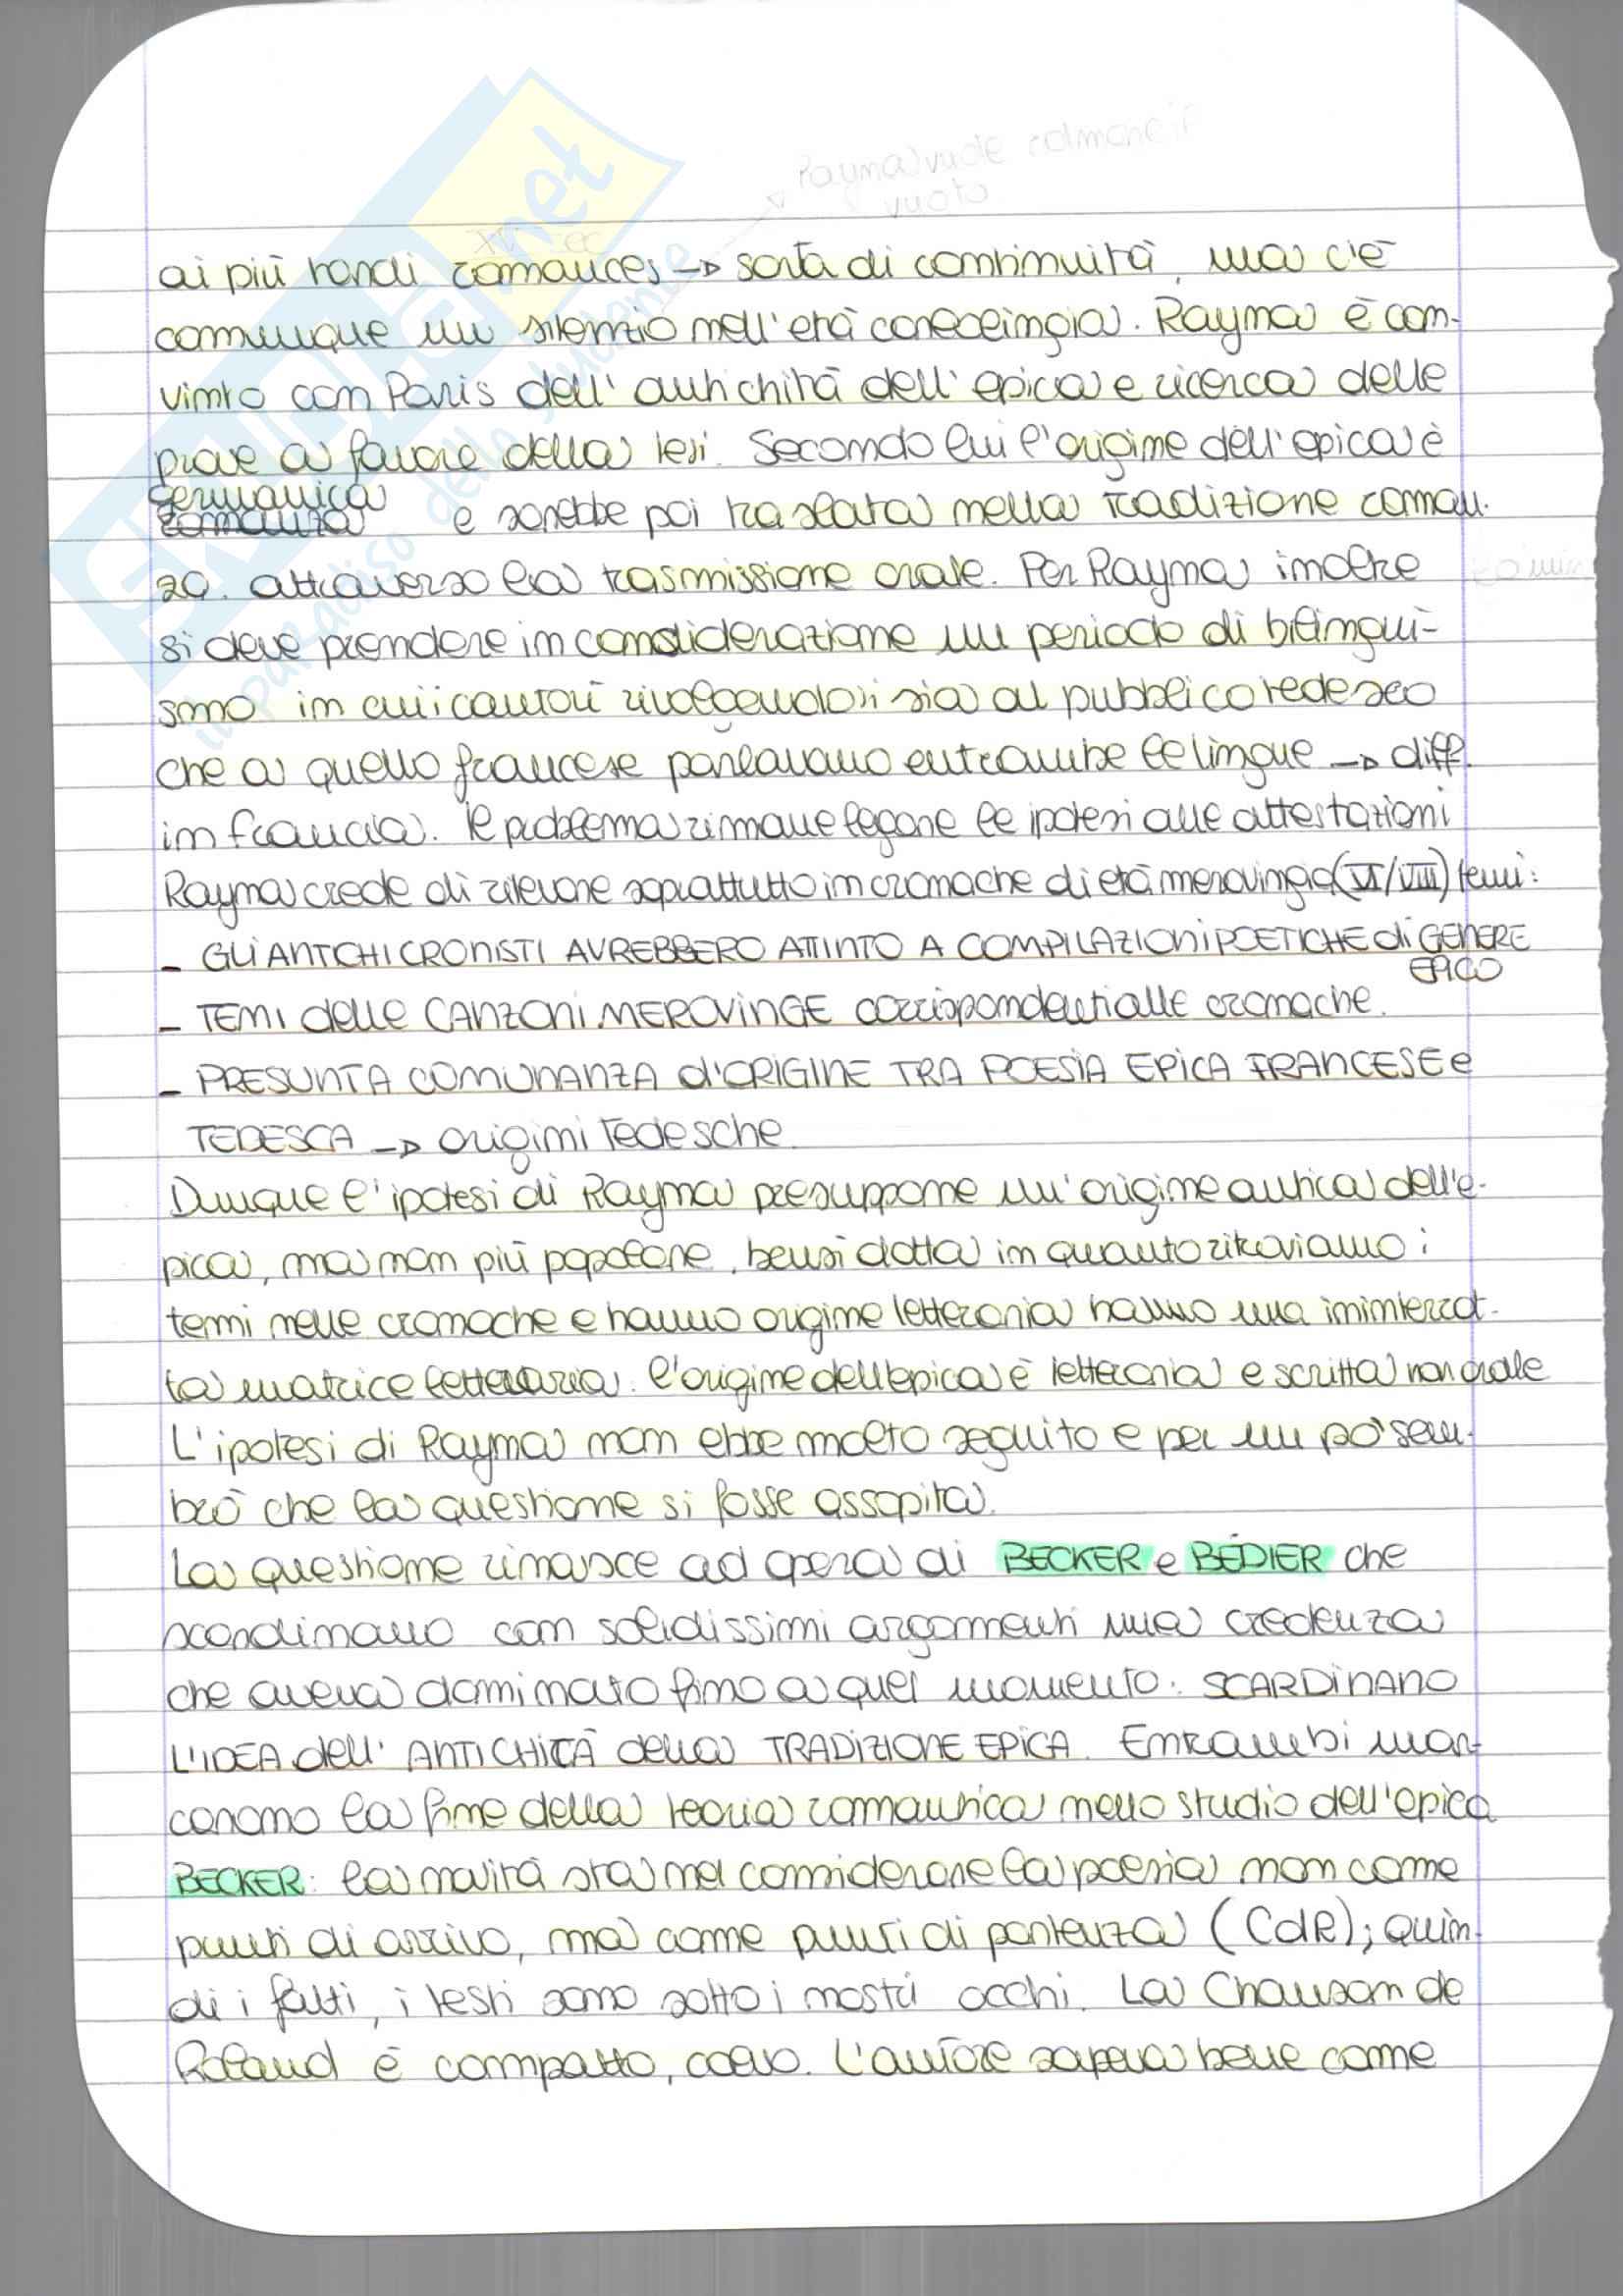 Rayna vuole colmare
vuoto
XV sec
ai più tardi romances → sorta di continuità, ma c'è
comunque un silenzio nell'età carolingia. Rayna è con-
vinto con Paris dell'antichità dell'epica e ricerca delle
prove a favore della tesi. Secondo lui l'origine dell'epica è
germanica
romanza e sarebbe poi traslata nella tradizione roman.
za. attraverso la trasmissione orale. Per Rayna inoltre
si deve prendere in considerazione un periodo di bilingui-
smo in cui i cantori rivolgendosi sia al pubblico tedesco
che a quello francese parlavano entrambe le lingue → diff.
in francia. Il problema rimane legare le ipotesi alle attestazioni
Rayna crede di rilevare soprattutto in cronache di età merovingia (VI/VIII) temi:
- GLI ANTCHI CRONISTI AVREBBERO ATTINTO A COMPILAZIONI POETICHE di GENERE
EPICO
- TEMI delle CANZONI MEROVINGE corrispondenti alle cronache.
- PRESUNTA COMUNANZA d'ORIGINE TRA POESIA EPICA FRANCESE e
TEDESCA → origini Tedesche.
Dunque l'ipotesi di Rayna presuppone un'origine antica dell'e-
pica, ma non più popolare, bensì dotta in quanto ritroviamo i
temi nelle cronache e hanno origine letteraria hanno una ininterrot-
ta matrice letteraria. l'origine dell'epica è letteraria e scritta non orale
L'ipotesi di Rayna non ebbe molto seguito e per un po' sem-
brò che la questione si fosse assopita.
La questione rinasce ad opera di BECKER e BÉDIER che
scardinano con solidissimi argomenti una credenza
che aveva dominato fino a quel momento: SCARDINANO
L'IDEA dell' ANTICHITÀ della TRADIZIONE EPICA. Entrambi mar-
carono la fine della teoria romantica nello studio dell'epica
BECKER: la novità sta nel considerare la poesia non come
punti di arrivo, ma come punti di partenza (CdR); quin-
di i fatti, i testi sono sotto i nostri occhi. La Chanson de
Roland è compatto, coevo. L'autore sapeva bene come
skuola.net
il paradiso dello studente